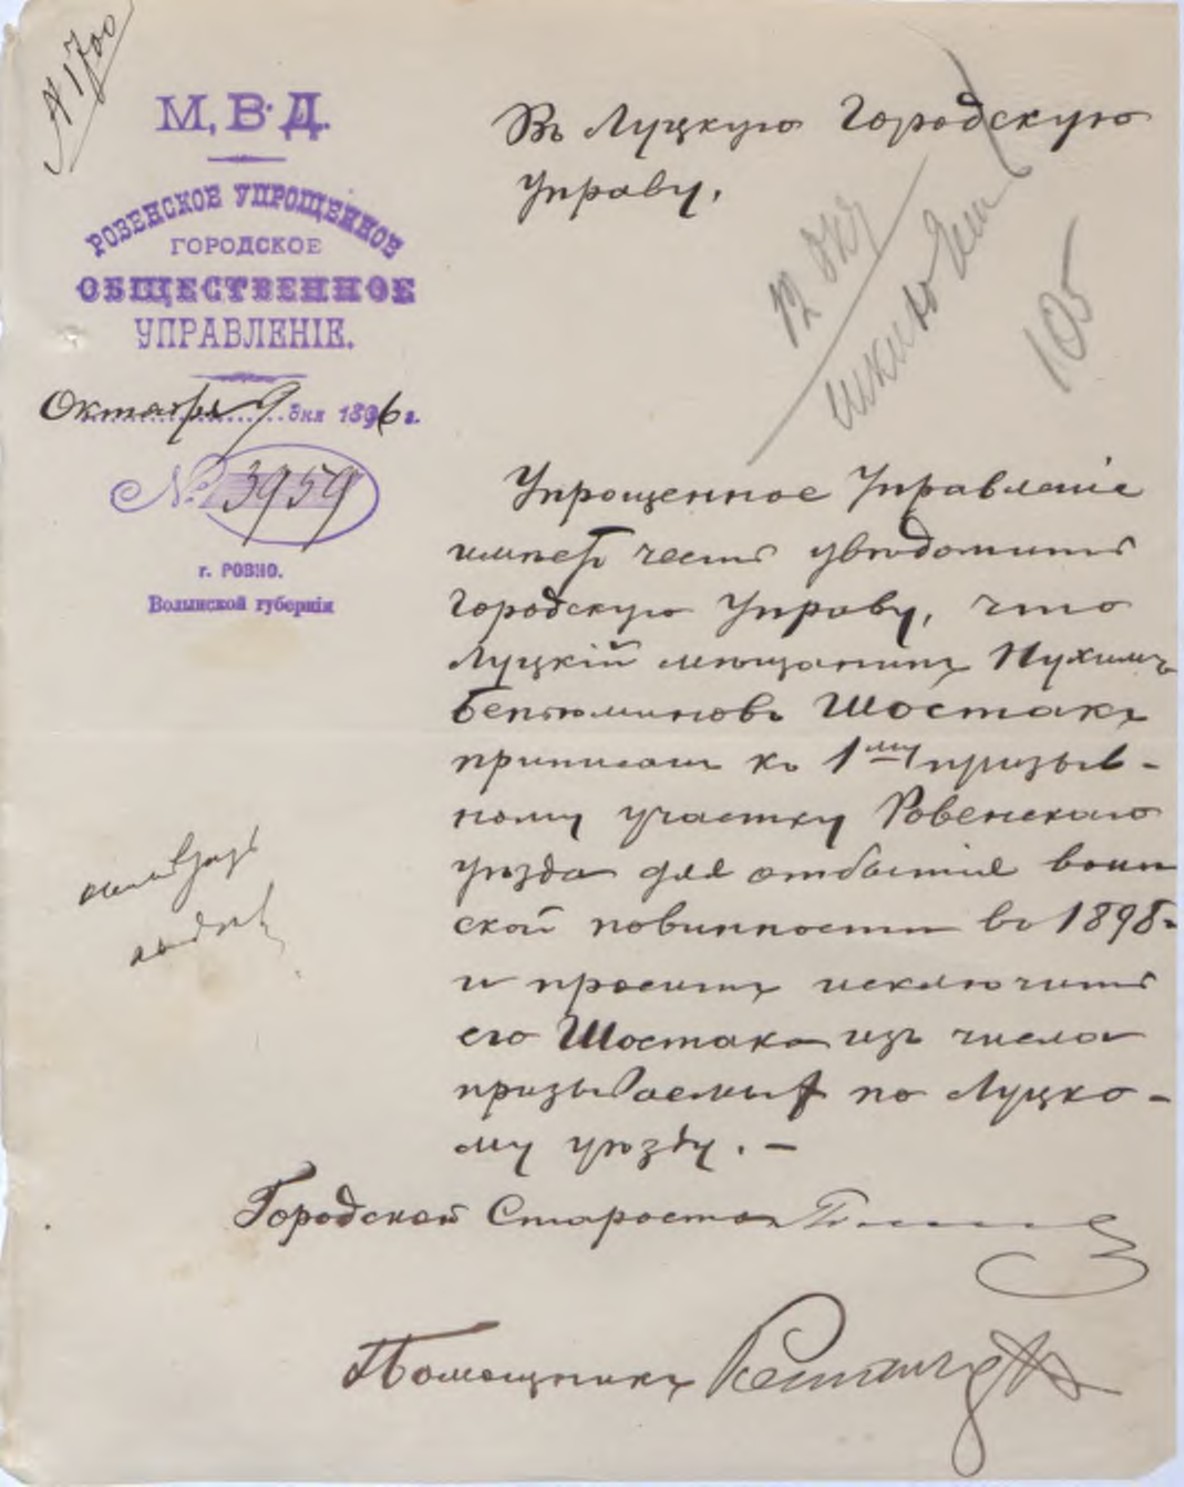 № 1700
М. В. Д.
РОВЕНСКОЕ УПРОЩЕННОЕ
ГОРОДСКОЕ
ОБЩЕСТВЕННОЕ
УПРАВЛЕНІЕ.
Октября 9 дня 1896 г.
№ 3959
г. РОВНО.
Волынской губерніи
Въ Луцкую Городскую
Управу.
12 Окт
105
Упрощенное Управленіе
имѣетъ честь увѣдомить
Городскую Управу, что
Луцкій мѣщанинъ Нухимъ
Беньяминовъ Шостакъ
приписанъ къ 1му призыв-
ному участку Ровенскаго
уѣзда для отбытія воин
ской повинности въ 1898 г
и проситъ исключить
его Шостака изъ числа
призываемыхъ по Луцко-
му уѣзду. —
Городской Староста
Помощникъ